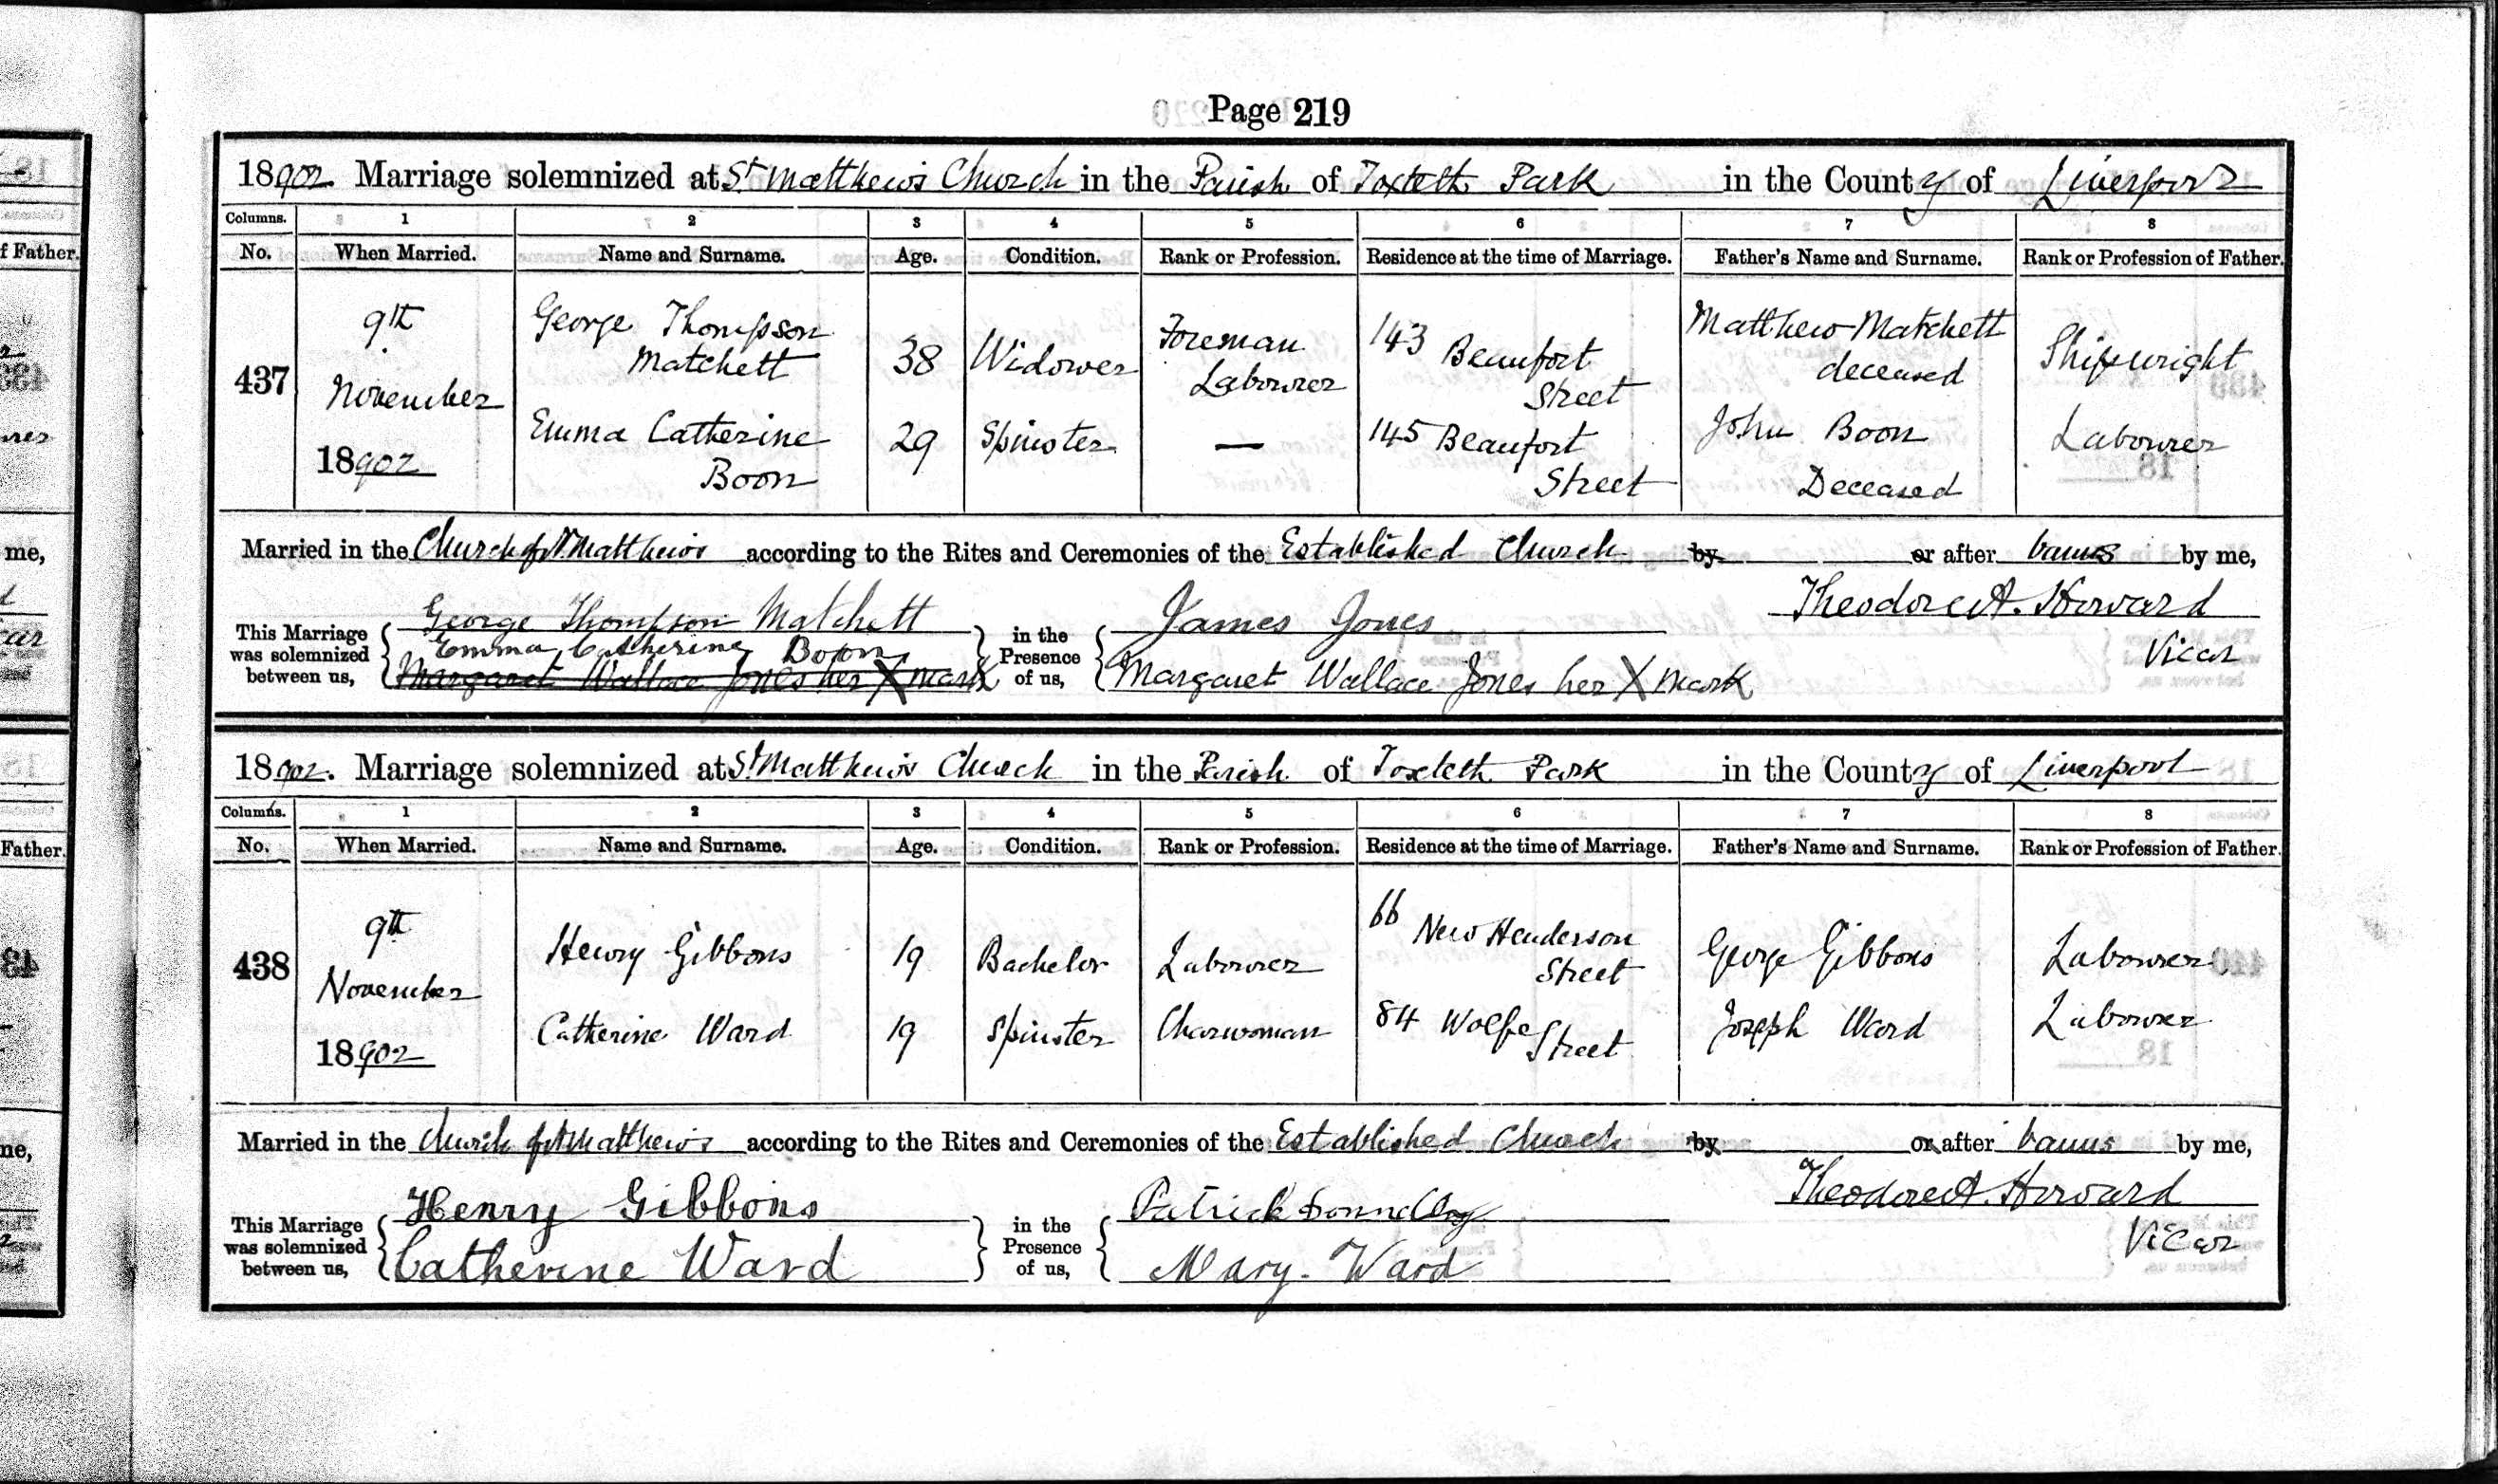 Page 219
18902. Marriage solemnized at St Matthew's Church in the Parish of Toxteth Park in the County of Liverpool
Columns. 1 2 3 4 5 6 7 8
No. When Married. Name and Surname. Age. Condition. Rank or Profession. Residence at the time of Marriage. Father's Name and Surname. Rank or Profession of Father.
437
9th
November
18902
George Thompson
Matchett
38
Widower
Foreman
Labourer
143 Beaufort
Street
Matthew Matchett
deceased
Shipwright
Emma Catherine
Boon
29
Spinster
—
145 Beaufort
Street
John Boon
Deceased
Labourer
Married in the Church of St Matthew's according to the Rites and Ceremonies of the Established Church by or after banns by me,
This Marriage
was solemnized
between us,
George Thompson Matchett
Emma Catherine Boon
Margaret Wallace Jones her X mark
in the
Presence
of us,
James Jones
Margaret Wallace Jones her X mark
Theodore A. Howard
Vicar
18902. Marriage solemnized at St Matthew's Church in the Parish of Toxteth Park in the County of Liverpool
Columns. 1 2 3 4 5 6 7 8
No. When Married. Name and Surname. Age. Condition. Rank or Profession. Residence at the time of Marriage. Father's Name and Surname. Rank or Profession of Father.
438
9th
November
18902
Henry Gibbons
19
Bachelor
Labourer
66 New Henderson
Street
George Gibbons
Labourer
Catherine Ward
19
Spinster
Charwoman
84 Wolfe
Street
Joseph Ward
Labourer
Married in the Church of St Matthew's according to the Rites and Ceremonies of the Established Church by or after banns by me,
This Marriage
was solemnized
between us,
Henry Gibbons
Catherine Ward
in the
Presence
of us,
Patrick Donnelly
Mary Ward
Theodore A. Howard
Vicar